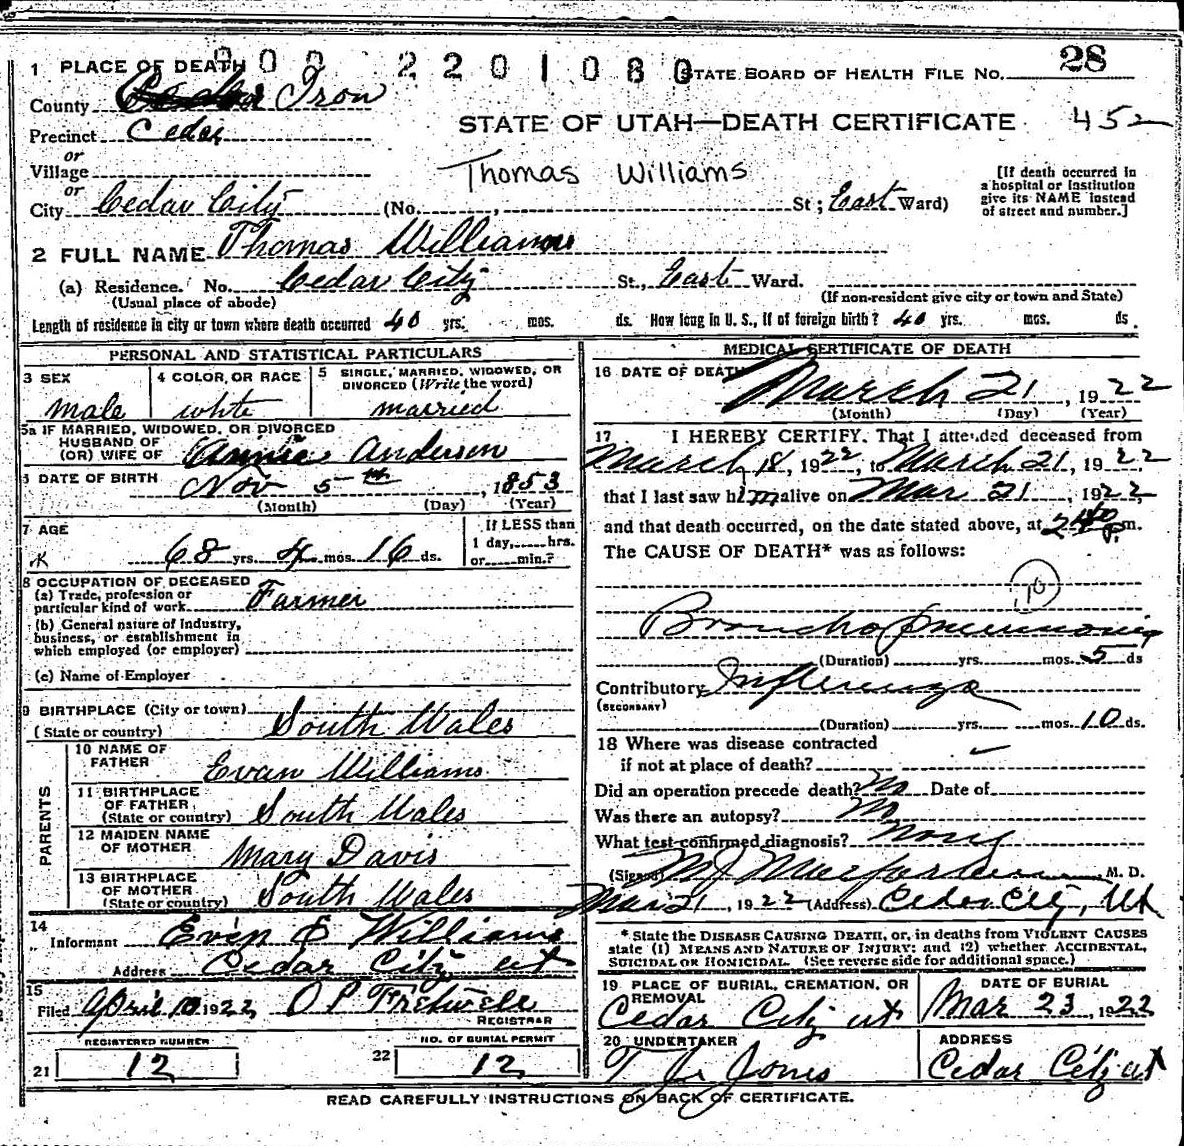 1 PLACE OF DEATH 900 2201080 STATE BOARD OF HEALTH FILE NO. 28
County Iron
Precinct Cedar
STATE OF UTAH—DEATH CERTIFICATE 452
or
Village
Thomas Williams
[If death occurred in
a hospital or institution
give its NAME instead
of street and number.]
or
City Cedar City (No. , St; East Ward)
2 FULL NAME Thomas Williams
(a) Residence. No. Cedar City St., East Ward.
(Usual place of abode) (If non-resident give city or town and State)
Length of residence in city or town where death occurred 40 yrs. mos. ds. How long in U. S., if of foreign birth? 40 yrs. mos. ds.
PERSONAL AND STATISTICAL PARTICULARS
3 SEX 4 COLOR, OR RACE 5 SINGLE, MARRIED, WIDOWED, OR
DIVORCED (Write the word)
Male white married
5a IF MARRIED, WIDOWED, OR DIVORCED
HUSBAND OF
(OR) WIFE OF Annie Anderson
6 DATE OF BIRTH Nov 5th, 1853
(Month) (Day) (Year)
7 AGE If LESS than
68 yrs. 4 mos. 16 ds. 1 day,.....hrs.
or.....min.?
8 OCCUPATION OF DECEASED
(a) Trade, profession or
particular kind of work Farmer
(b) General nature of Industry,
business, or establishment in
which employed (or employer)
(c) Name of Employer
9 BIRTHPLACE (City or town)
(State or country) South Wales
PARENTS
10 NAME OF
FATHER Evan Williams
11 BIRTHPLACE
OF FATHER
(State or country) South Wales
12 MAIDEN NAME
OF MOTHER Mary Davis
13 BIRTHPLACE
OF MOTHER
(State or country) South Wales
14
Informant Williams
Address Cedar City ut
15
Filed April 10 1922 O P
REGISTRAR
REGISTERED NUMBER NO. OF BURIAL PERMIT
21 12 22 12
MEDICAL CERTIFICATE OF DEATH
16 DATE OF DEATH
March 21, 1922
(Month) (Day) (Year)
17 I HEREBY CERTIFY, That I attended deceased from
March 18, 1922, to March 21, 1922
that I last saw him alive on Mar 21, 1922,
and that death occurred, on the date stated above, at 240 p.m.
The CAUSE OF DEATH* was as follows:
10
Broncho pneumonia
(Duration) yrs. mos. 5 ds
Contributory Influenza
(SECONDARY)
(Duration) yrs. mos. 10 ds.
18 Where was disease contracted
if not at place of death?
Did an operation precede death? No Date of
Was there an autopsy? No
What test confirmed diagnosis? None
(Signed) M J Macfarlane, M. D.
Mar 21, 1922 (Address) Cedar City, Ut
* State the DISEASE CAUSING DEATH, or, in deaths from VIOLENT CAUSES
state (1) MEANS AND NATURE OF INJURY; and (2) whether ACCIDENTAL,
SUICIDAL OR HOMICIDAL. (See reverse side for additional space.)
19 PLACE OF BURIAL, CREMATION, OR
REMOVAL
Cedar City ut
DATE OF BURIAL
Mar 23, 1922
20 UNDERTAKER
T J Jones
ADDRESS
Cedar City ut
READ CAREFULLY INSTRUCTIONS ON BACK OF CERTIFICATE.